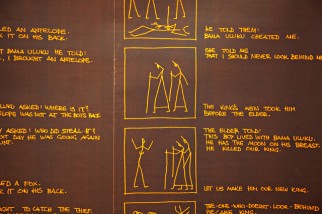 LED AN ANTELOPE.
K IT ON HIS BACK.
T BAMA ULUKU HE TOLD:
, I BROUGHT AN ANTELOPE.
ULUKU ASKED: WHERE IS IT?
LOPE WAS NOT AT THE BOY'S BACK
Y ASKED: WHO DID STEAL IT?
OT DAY HE WAS GOING AGAIN
UNT.
LED A FOX.
K IT ON HIS BACK.
UGHT TO CATCH THE THIEF
HE TOLD THEM:
BAMA ULUKU CREATED ME.
SHE TOLD ME
THAT I SHOULD NEVER LOOK BEHIND ME
THE KING'S MEN TOOK HIM
BEFORE THE ELDER.
THE ELDER TOLD:
THIS BOY LIVED WITH BAMA ULUKU.
HE HAS THE MOON ON HIS BREAST.
HE KILLED OUR KING.
LET US MAKE HIM OUR NEW KING.
HE-ONE-WHO-DOESN'T-LOOK-BEHIND
BECAME KING